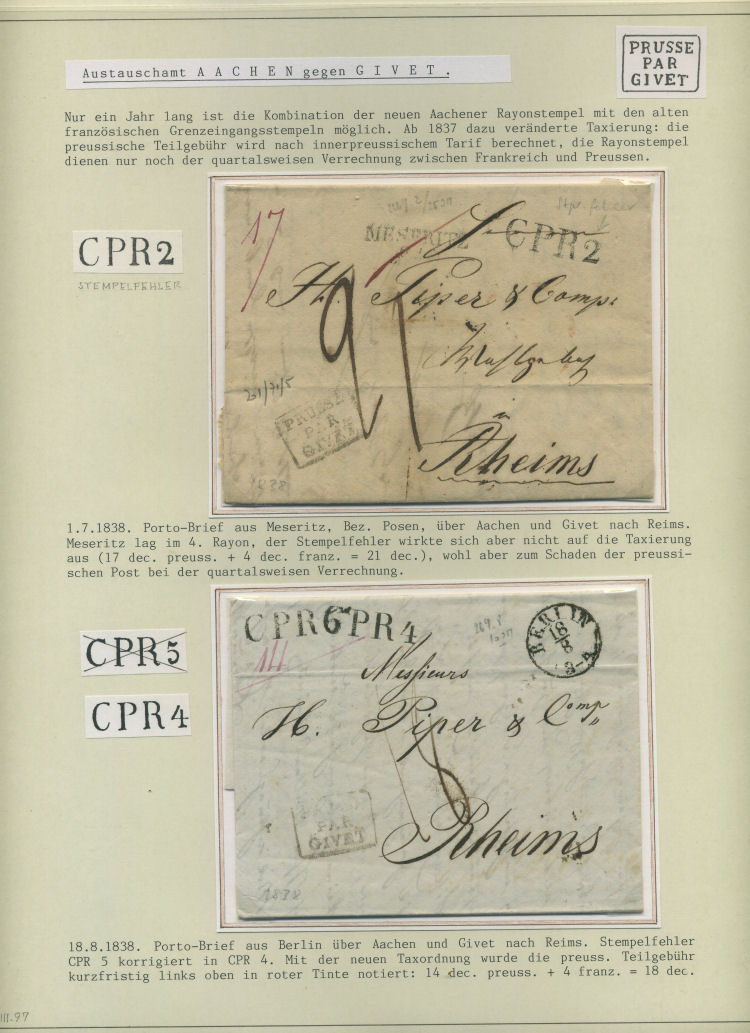 PRUSSE
PAR
GIVET
Austauschamt A A C H E N gegen G I V E T .
Nur ein Jahr lang ist die Kombination der neuen Aachener Rayonstempel mit den alten
französischen Grenzeingangsstempeln möglich. Ab 1837 dazu veränderte Taxierung: die
preussische Teilgebühr wird nach innerpreussischem Tarif berechnet, die Rayonstempel
dienen nur noch der quartalsweisen Verrechnung zwischen Frankreich und Preussen.
CPR2
STEMPELFEHLER
17
MESERITZ
CPR2
H. Piper & Comp.
21
PRUSSE
PAR
GIVET
à
Rheims
1838
1.7.1838. Porto-Brief aus Meseritz, Bez. Posen, über Aachen und Givet nach Reims.
Meseritz lag im 4. Rayon, der Stempelfehler wirkte sich aber nicht auf die Taxierung
aus (17 dec. preuss. + 4 dec. franz. = 21 dec.), wohl aber zum Schaden der preussi-
schen Post bei der quartalsweisen Verrechnung.
CPR5
CPR4
CPR
PR4
BERLIN
18
8
14
Messieurs
H. Piper & Comp
18
Rheims
PAR
GIVET
1838
18.8.1838. Porto-Brief aus Berlin über Aachen und Givet nach Reims. Stempelfehler
CPR 5 korrigiert in CPR 4. Mit der neuen Taxordnung wurde die preuss. Teilgebühr
kurzfristig links oben in roter Tinte notiert: 14 dec. preuss. + 4 franz. = 18 dec.
III.97